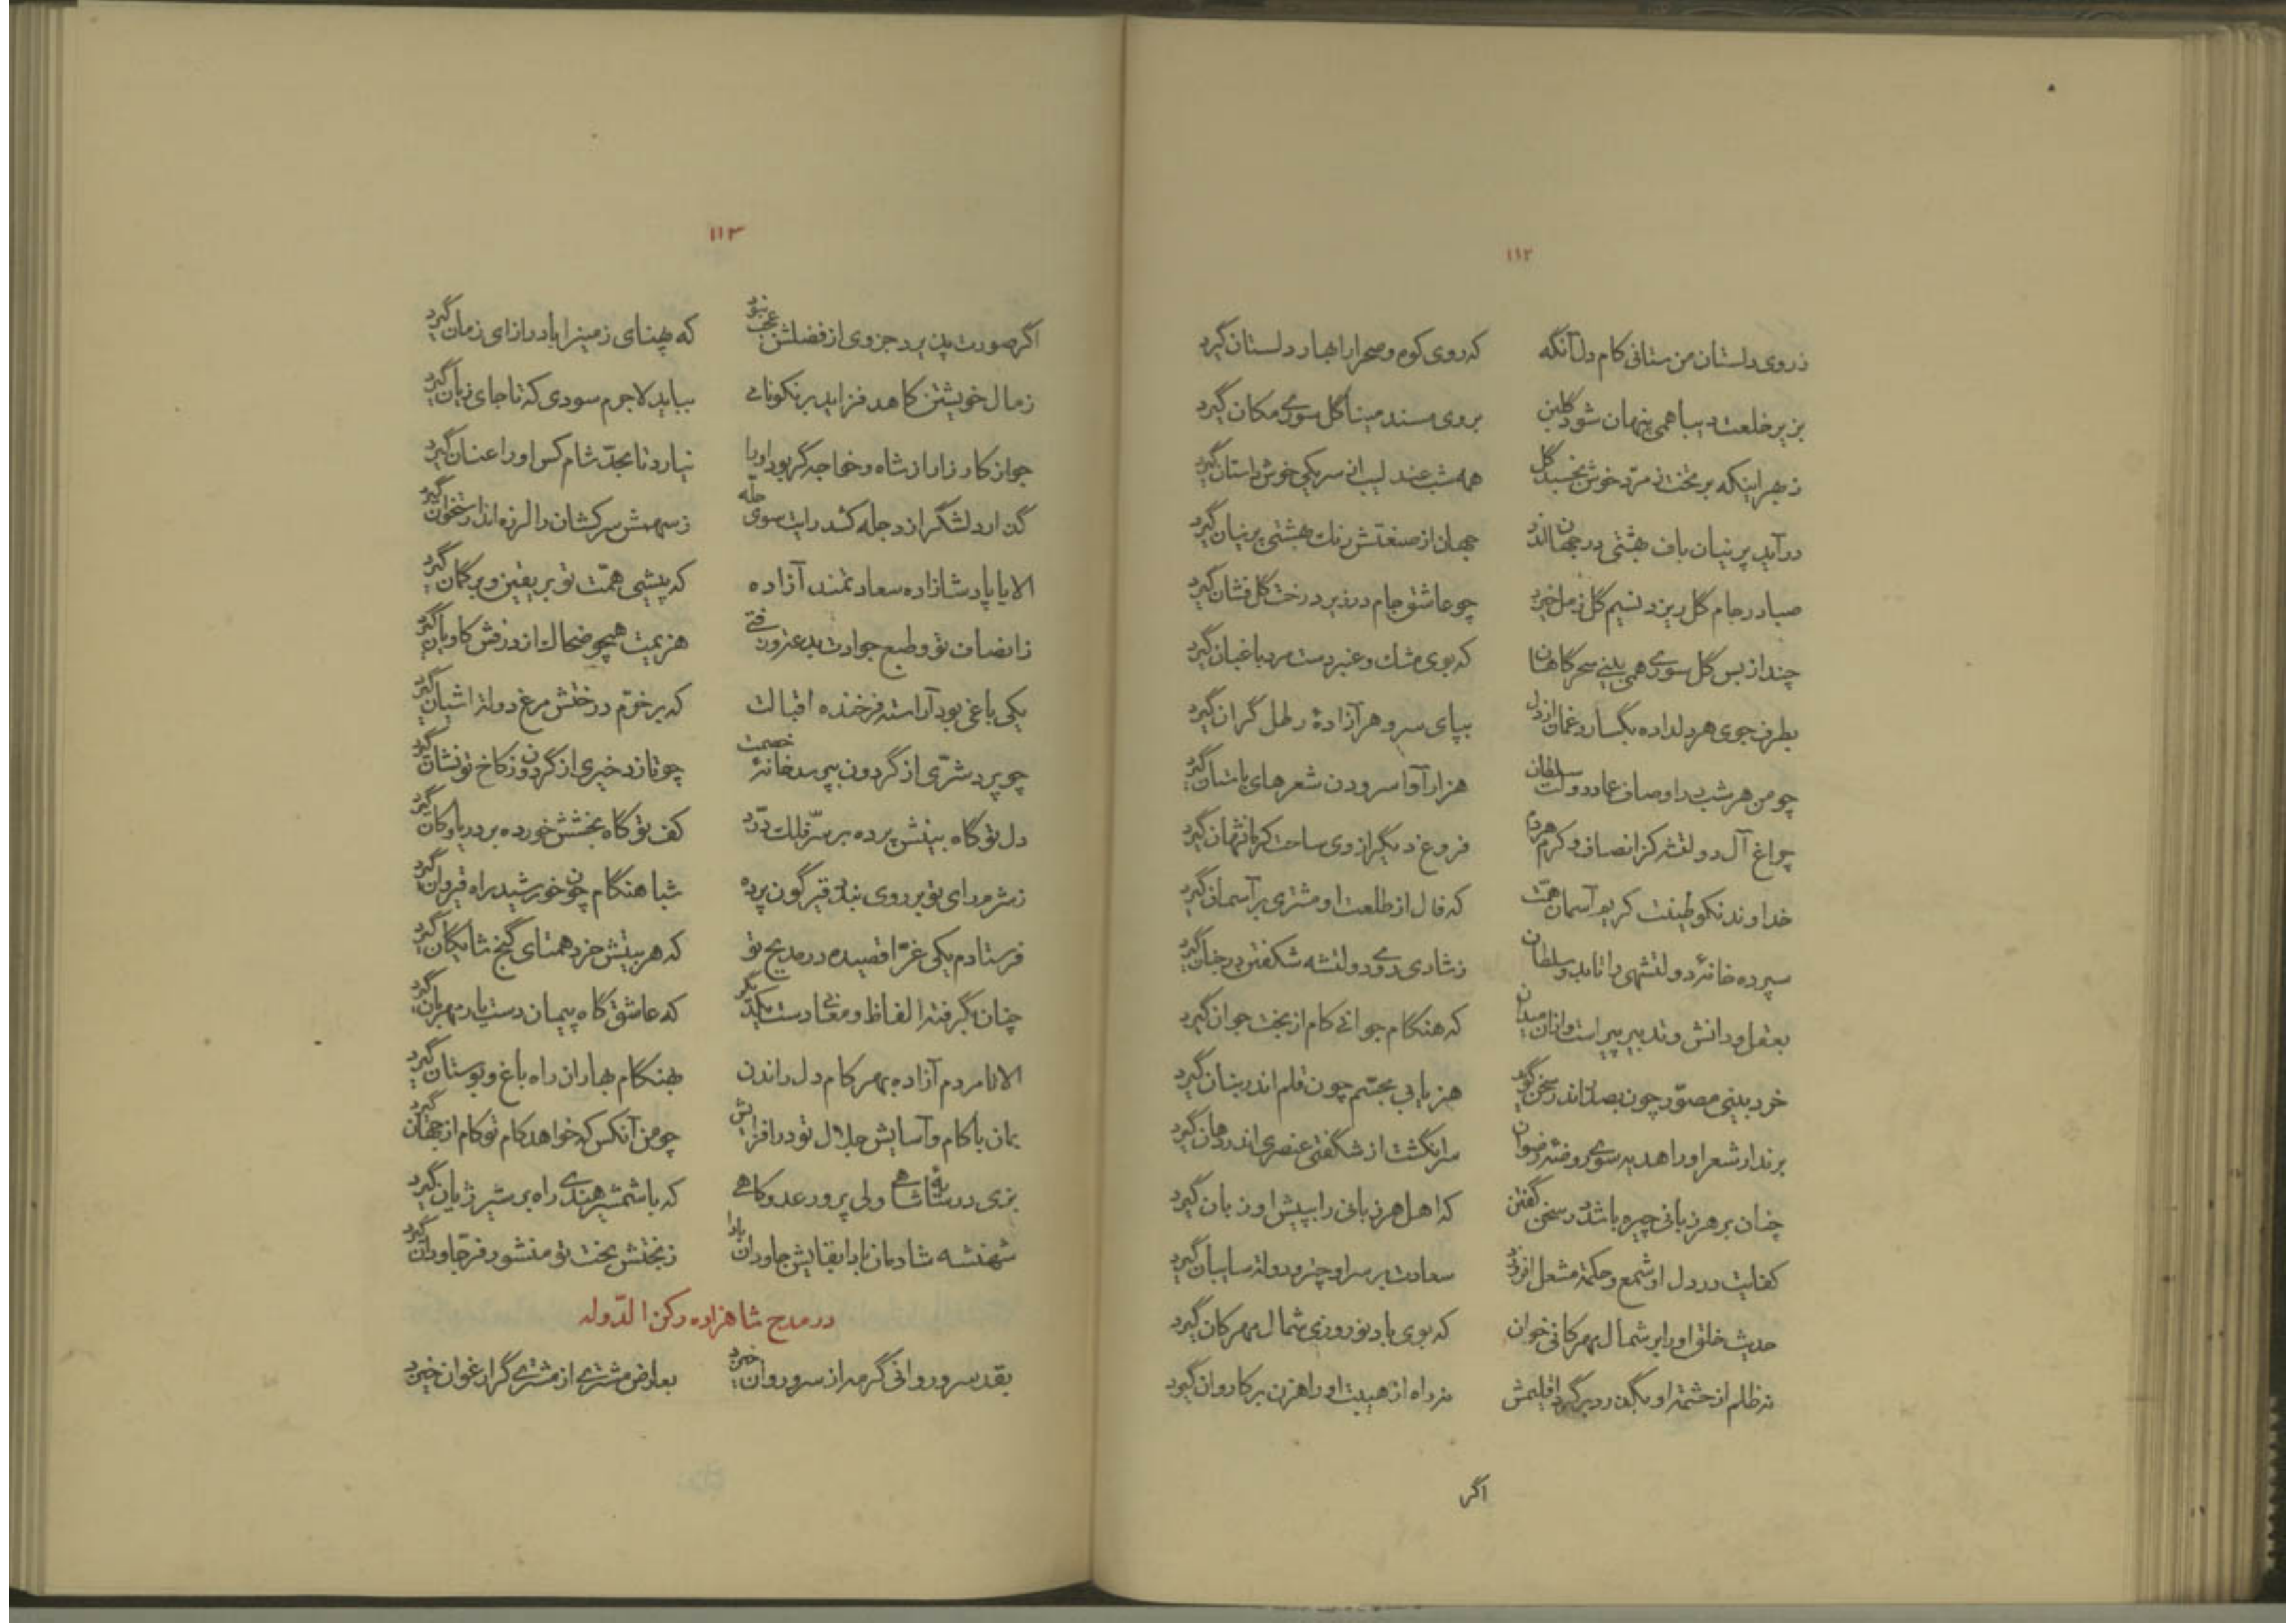 ۱۱۲
ز روی دلستان من ستانی کام دل آنگه که روی کوه و صحرا را بهار دلستان گیرد
بزیر خلعت دیبا همی پنهان شود گلبن بروی مسند مینا گل سوری مکان گیرد
ز بهر اینکه بر تخت زمرّد خوش بخسبد گل همه شب عندلیب از سر یکی خوش داستان گیرد
درآید پرنیان باف بهشتی در جهان اندر جهان از صنعتش رنک بهشتی پرنیان گیرد
صبا در جام گل ریزد نسیم گل ز مل خیزد چو عاشق جام در زیر درخت گل فشان گیرد
چند از بس گل سوری همی بینی سحرکاهان که بوی مشك و عنبر دست مرد باغبان گیرد
بطرف جوی هر دلداده بگسارد غمان از دل بپای سرو هر آزادهٔ رطل گران گیرد
چو من هر شب در اوصاف عماد دولت سلطان هزار آوا سرودن شعرهای باستان گیرد
چراغ آل دولتشه کز انصاف و کرم هر دم فروغ دیگر از وی ساحت کرمانشهان گیرد
خداوند نکو طینت کریم آسمان همّت که فال از طلعت او مشتری بر آسمان گیرد
سپرده خانهٔ دولتشهی را تا بدو سلطان ز شادی روی دولتشه شکفتن در جنان گیرد
بعقل و دانش و تدبیر پیر است و ازان میدان که هنگام جوانی کام از بخت جوان گیرد
خرد بینی مصوّر چون بصدر اندر سخن گوید هنر یابی مجسّم چون قلم اندر بنان گیرد
برند ار شعر او را هدیه سوی روضهٔ رضوان سر انگشت از شگفتی عنصری اندر دهان گیرد
چنان بر هر زبانی چیره باشد در سخن گفتن که اهل هر زبانی را بپیش او زبان گیرد
کفایت در دل او شمع و حکمة مشعل افروزد سعادت بر سر او چتر و دولة سایبان گیرد
حدیث خلق او را بر شمال مهرکانی خوان که بوی باد نوروزی شمال مهرکان گیرد
نه ظلم از حشمة او بگذرد بر گرد اقلیمش نه راه از هیبت او راهزن بر کاروان گیرد
اگر
۱۱۳
اگر صورت پذیرد جزوی از فضلش عجب نبود که پهنای زمینرا با درازای زمان گیرد
ز مال خویشتن کاهد فزاید بر نکونامی بباید لاجرم سودی که تا جای زیان گیرد
جواز کارزار از شاه و خواجه گر بود او را نیارد تا بحدّ شام کس او را عنان گیرد
گذارد لشگر از دجله کشد رایت سوی حلّه ز سهمش سرکشان را لرزه اندر استخوان گیرد
الا یا پادشازاده سعادتمند آزاده که پیشی همّت تو بر یقین و بر گمان گیرد
ز انصاف تو و طبع جوادت بدعة و زفتی هزیمت همچو ضحاك از درفش کاویان گیرد
یکی باغی بود آراسته فرخنده اقبالت که بر خرّم درختش مرغ دولة اشیان گیرد
چو پرد شرّی از گردون بپرسد خانهٔ خصمت چو تازد خیری از گردون ز کاخ تو نشان گیرد
دل تو گاه بینش پرده بر سرّ فلك درّد کف تو گاه بخشش خورده بر دریا و کان گیرد
ز شرم رای تو بر روی بندد قیرگون پرده شباهنگام چون خورشید راه قیروان گیرد
فرستادم یکی غرّا قصیده در مدیح تو که هر بیتش خرد همتای گنج شایگان گیرد
چنان بگرفته الفاظ و معانی دست یکدیگر که عاشق گاه پیمان دست یار مهربان گیرد
الا تا مردم آزاده بهر کام دل راندن بهنگام بهاران راه باغ و بوستان گیرد
بمان با کام و آسایش جلال تو در افزایش چو من آنکس که خواهد کام تو کام از جهان گیرد
بزی در سایهٔ شاهی ولی پرور عدو کاهی که با شمشیر هندی راه بر شیر ژیان گیرد
شهنشه شادمان بادا بقایش جاودان بادا ز بختش بخت تو منشور فرّ جاودان گیرد
در مدح شاهزاده رکن الدّوله
بقد سرو روانی گر مه از سرو روان خیزد بعارض مشتری از مشتری گر ارغوان خیزد